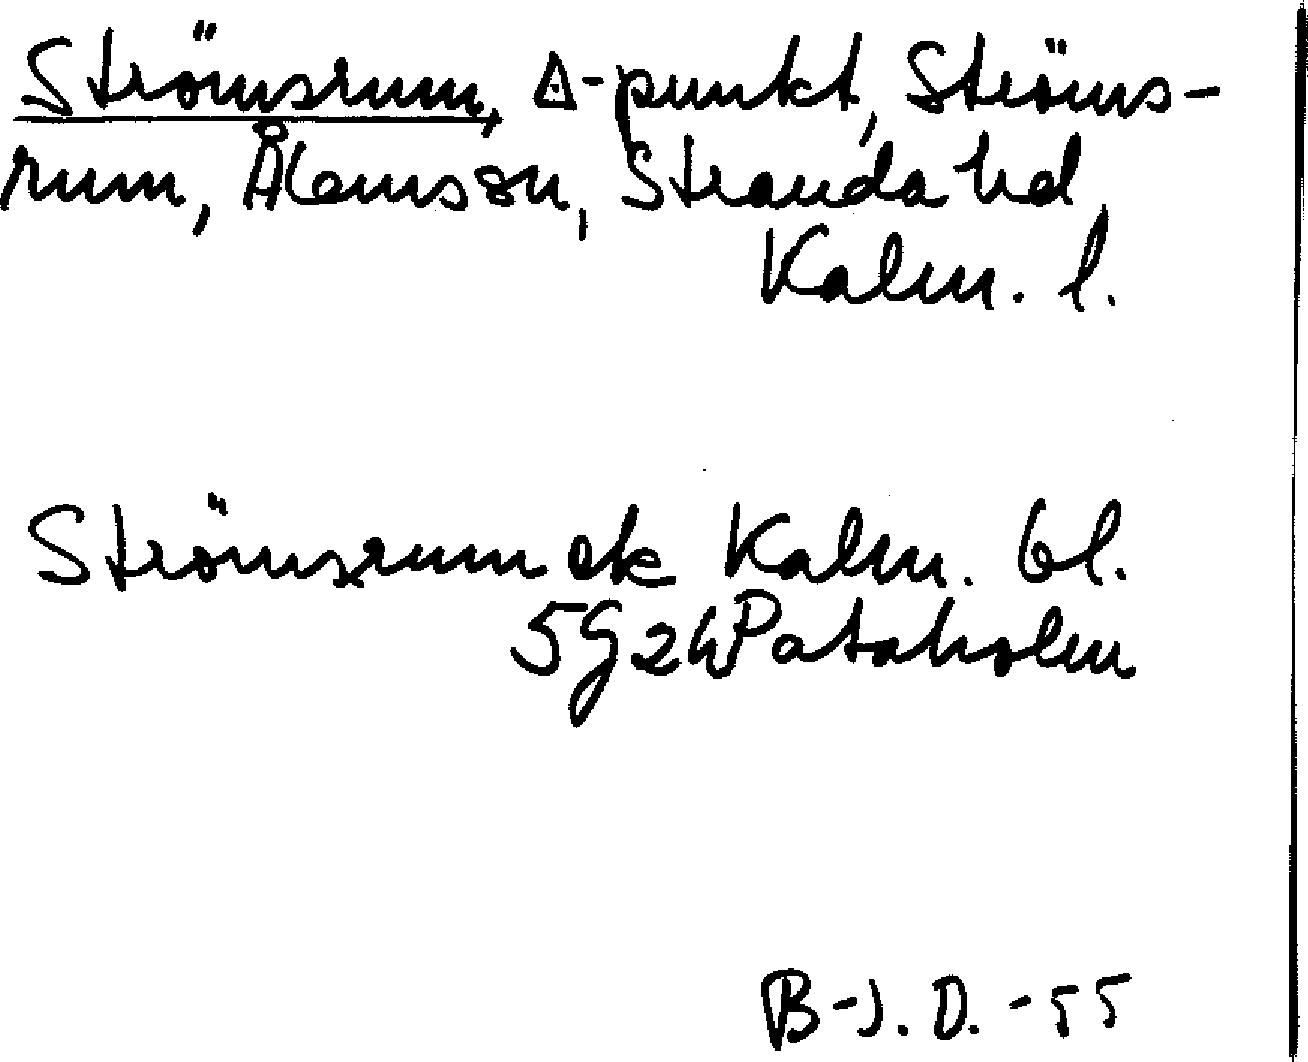 Strömsrum, Δ-punkt, Ströms-
rum, Ålems sn, Stranda hd
Kalm. l.
Strömsrum ek Kalm. bl.
5G2h Pataholm
B-J. D. -55